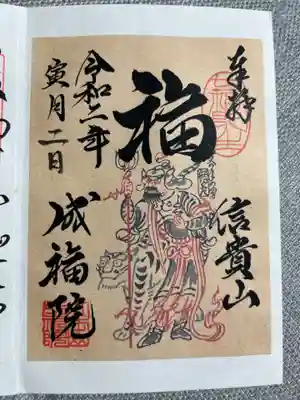 奉拝
信貴山
福
令和二年
寅月二日
成福院